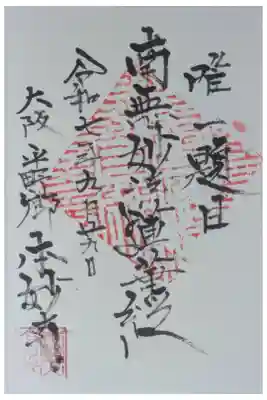 唯一題目
南無妙法蓮華経
令和七年九月
大阪 本妙寺